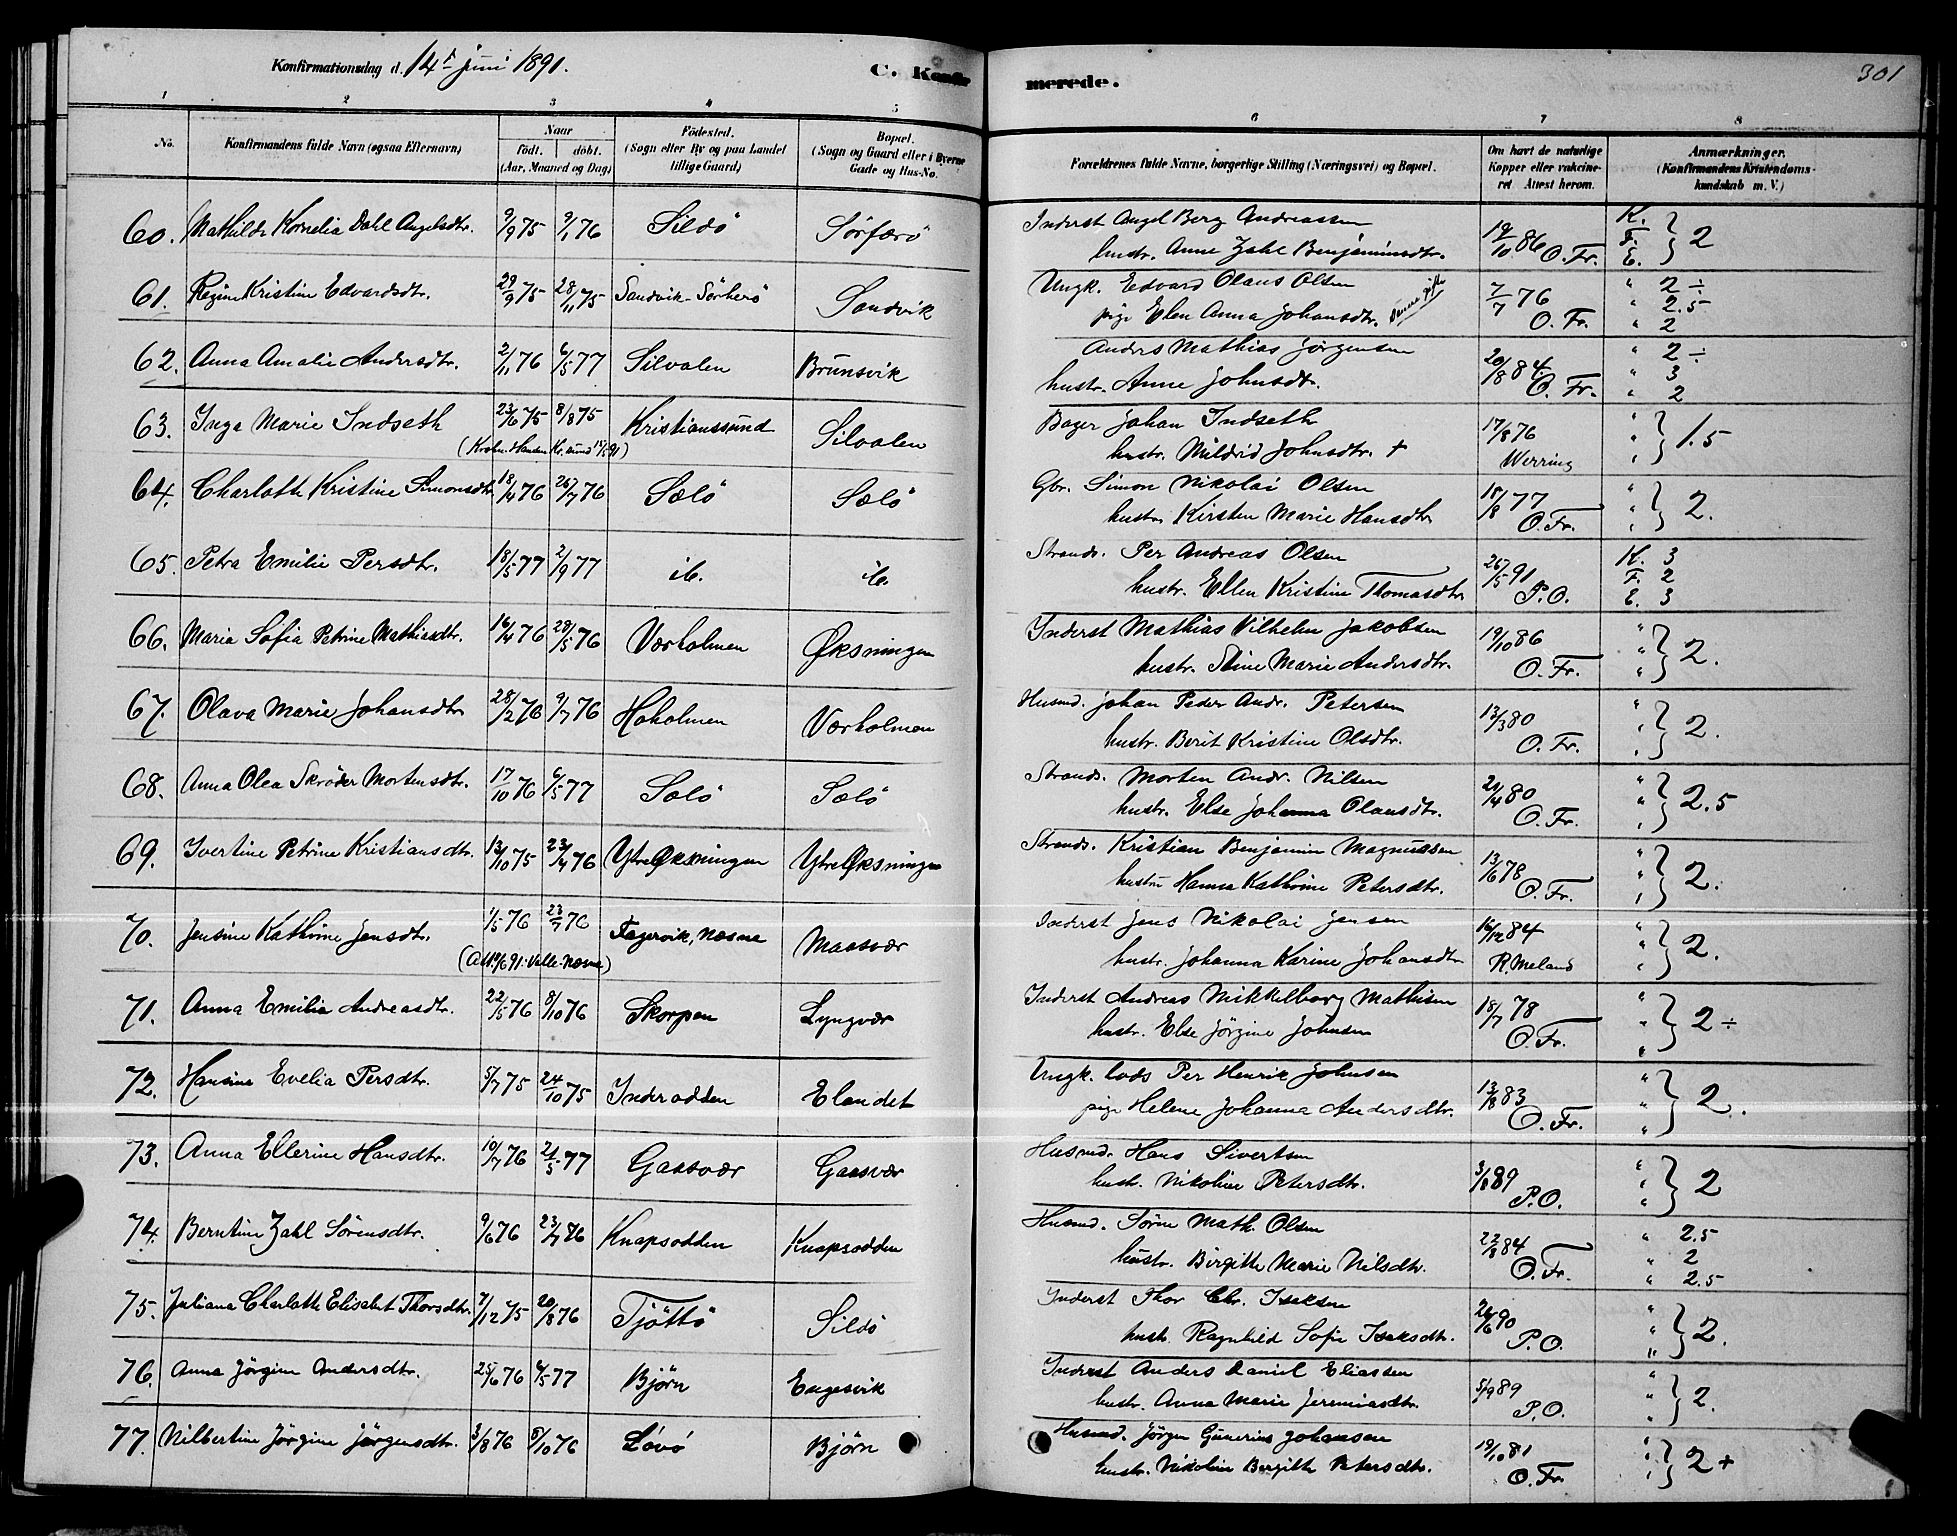 Konfirmationsdag d. 14de juni 1891.
C. Konfirmerede.
301
1 2 3 4 5 6 7 8
No.
Konfirmandens fulde Navn (ogsaa Efternavn)
Naar
födt. döbt.
(Aar, Maaned og Dag)
Födested.
(Sogn eller By og paa Landet
tillige Gaard)
Bopæl.
(Sogn og Gaard eller i Byerne
Gade og Hus-No.
Forældrenes fulde Navne, borgerlige Stilling (Næringsvei) og Bopæl.
Om havt de naturlige
Kopper eller vakcine-
ret Attest herom.
Anmærkninger.
(Konfirmandens Kristendoms-
kundskab m. V.)
60. Mathilde Kornelia Dahl Angelsdtr. 9/9 75 9/1 76 Sildö Sörfærö Inderst Angel Berg Andreassen 19/10 86 O. Fr. K. F. E. } 2
hustr. Anne Zahl Benjaminsdtr.
61. Regine Kristine Edvardsdtr. 29/9 75 28/11 75 Sandvik-Sörherö Sandvik Ungk. Edvard Olaus Olsen 7/7 76 O. Fr. " 2 ÷ " 2.5 " 2
pige Elen Anna Johansdtr.
62. Anna Amalie Andersdtr. 2/11 76 6/5 77 Silvalen Brunsvik Anders Mathias Jörgensen 20/8 84 O. Fr. " 2 ÷ " 3 " 2
hustr. Anne Johnsdtr.
63. Inga Marie Indseth 23/6 75 8/8 75 Kristianssund Silvalen Bager Johan Indseth 17/8 76 Werring } 1.5
hustr. Mildrid Johnsdtr. +
64. Charlotte Kristine Simonsdtr. 18/4 76 26/7 76 Sælö Sælö Gbr. Simon Nikolai Olsen 18/8 77 O. Fr. } 2.
hustr. Kirsten Marie Hansdtr.
65. Petra Emilie Persdtr. 18/5 77 2/9 77 ib. ib. Strands. Per Andreas Olsen 26/5 91 P. O. K. 3 F. 2 E. 3
hustr. Ellen Kristine Thomasdtr.
66. Maria Sofia Petrine Mathiasdtr. 16/4 76 28/5 76 Værholmen Øksningen Inderst Mathias Vilhelm Jakobsen 19/10 86 O. Fr. } 2.
hustr. Stine Marie Andersdtr.
67. Olava Marie Johansdtr. 28/2 76 9/7 76 Hoholmen Værholmen Husmd. Johan Peder Andr. Petersen 13/3 80 O. Fr. } 2.
hustr. Berit Kristine Olsdtr.
68. Anna Olea Skröder Mortensdtr. 17/10 76 6/5 77 Sælö Sælö Strands. Morten Andr. Nilsen 21/4 80 O. Fr. } 2.5
hustr. Else Johanna Olausdtr.
69. Ivertine Petrine Kristiansdtr. 13/10 75 23/4 76 Ytre Øksningen Ytre Øksningen Strands. Kristian Benjamin Magnussen 13/6 78 O. Fr. } 2.
hustru Hanna Kathrine Petersdtr.
70. Jensine Kathrine Jensdtr. 1/5 76 23/7 76 Fagervik, Næsna Maasvær Inderst Jens Nikolai Jensen 16/12 84 R. Meland } 2.
hustr. Johanna Karine Johansdtr.
71. Anna Emilie Andreasdtr. 22/5 76 8/10 76 Skorpen Lyngvær Inderst Andreas Mikkelborg Mathisen 18/7 78 O. Fr. } 2 ÷
hustr. Else Jörgine Johnsen
72. Hansine Evelia Persdtr. 5/7 75 24/10 75 Inderodden Elandet Ungk. Lods Per Henrik Johnsen 13/8 83 O. Fr. } 2.
pige Helene Johanna Andersdtr.
73. Anna Ellerine Hansdtr. 10/7 76 21/5 77 Gaasvær Gaasvær Husmd. Hans Sivertsen 3/8 89 P. O. } 2
hustr. Nikoline Petersdtr.
74. Berntine Zahl Sörensdtr. 9/6 76 23/7 76 Knapsodden Knapsodden Husmd. Sören Math. Olsen 22/8 84 O. Fr. " 2.5 " 2 " 2.5
hustr. Birgitte Marie Nilsdtr.
75. Juliana Charlotte Elisabet Thorsdtr. 7/12 75 20/8 76 Tjöttö Sildö Inderst Thor Chr. Isaksen 26/6 90 P. O. } 2.
hustr. Ragnhild Sofie Isaksdtr.
76. Anna Jörgine Andersdtr. 25/6 76 6/5 77 Björn Engesvik Inderst Anders Daniel Eliassen 5/9 89 P. O. } 2.
hustr. Anna Marie Jeremiasdtr.
77. Nilbertine Jörgine Jörgensdtr. 3/8 76 8/10 76 Lövö Björn Husmd. Jörgen Gunerius Johansen 19/10 81 O. Fr. } 2 +
hustr. Nikoline Bergitte Petersdtr.